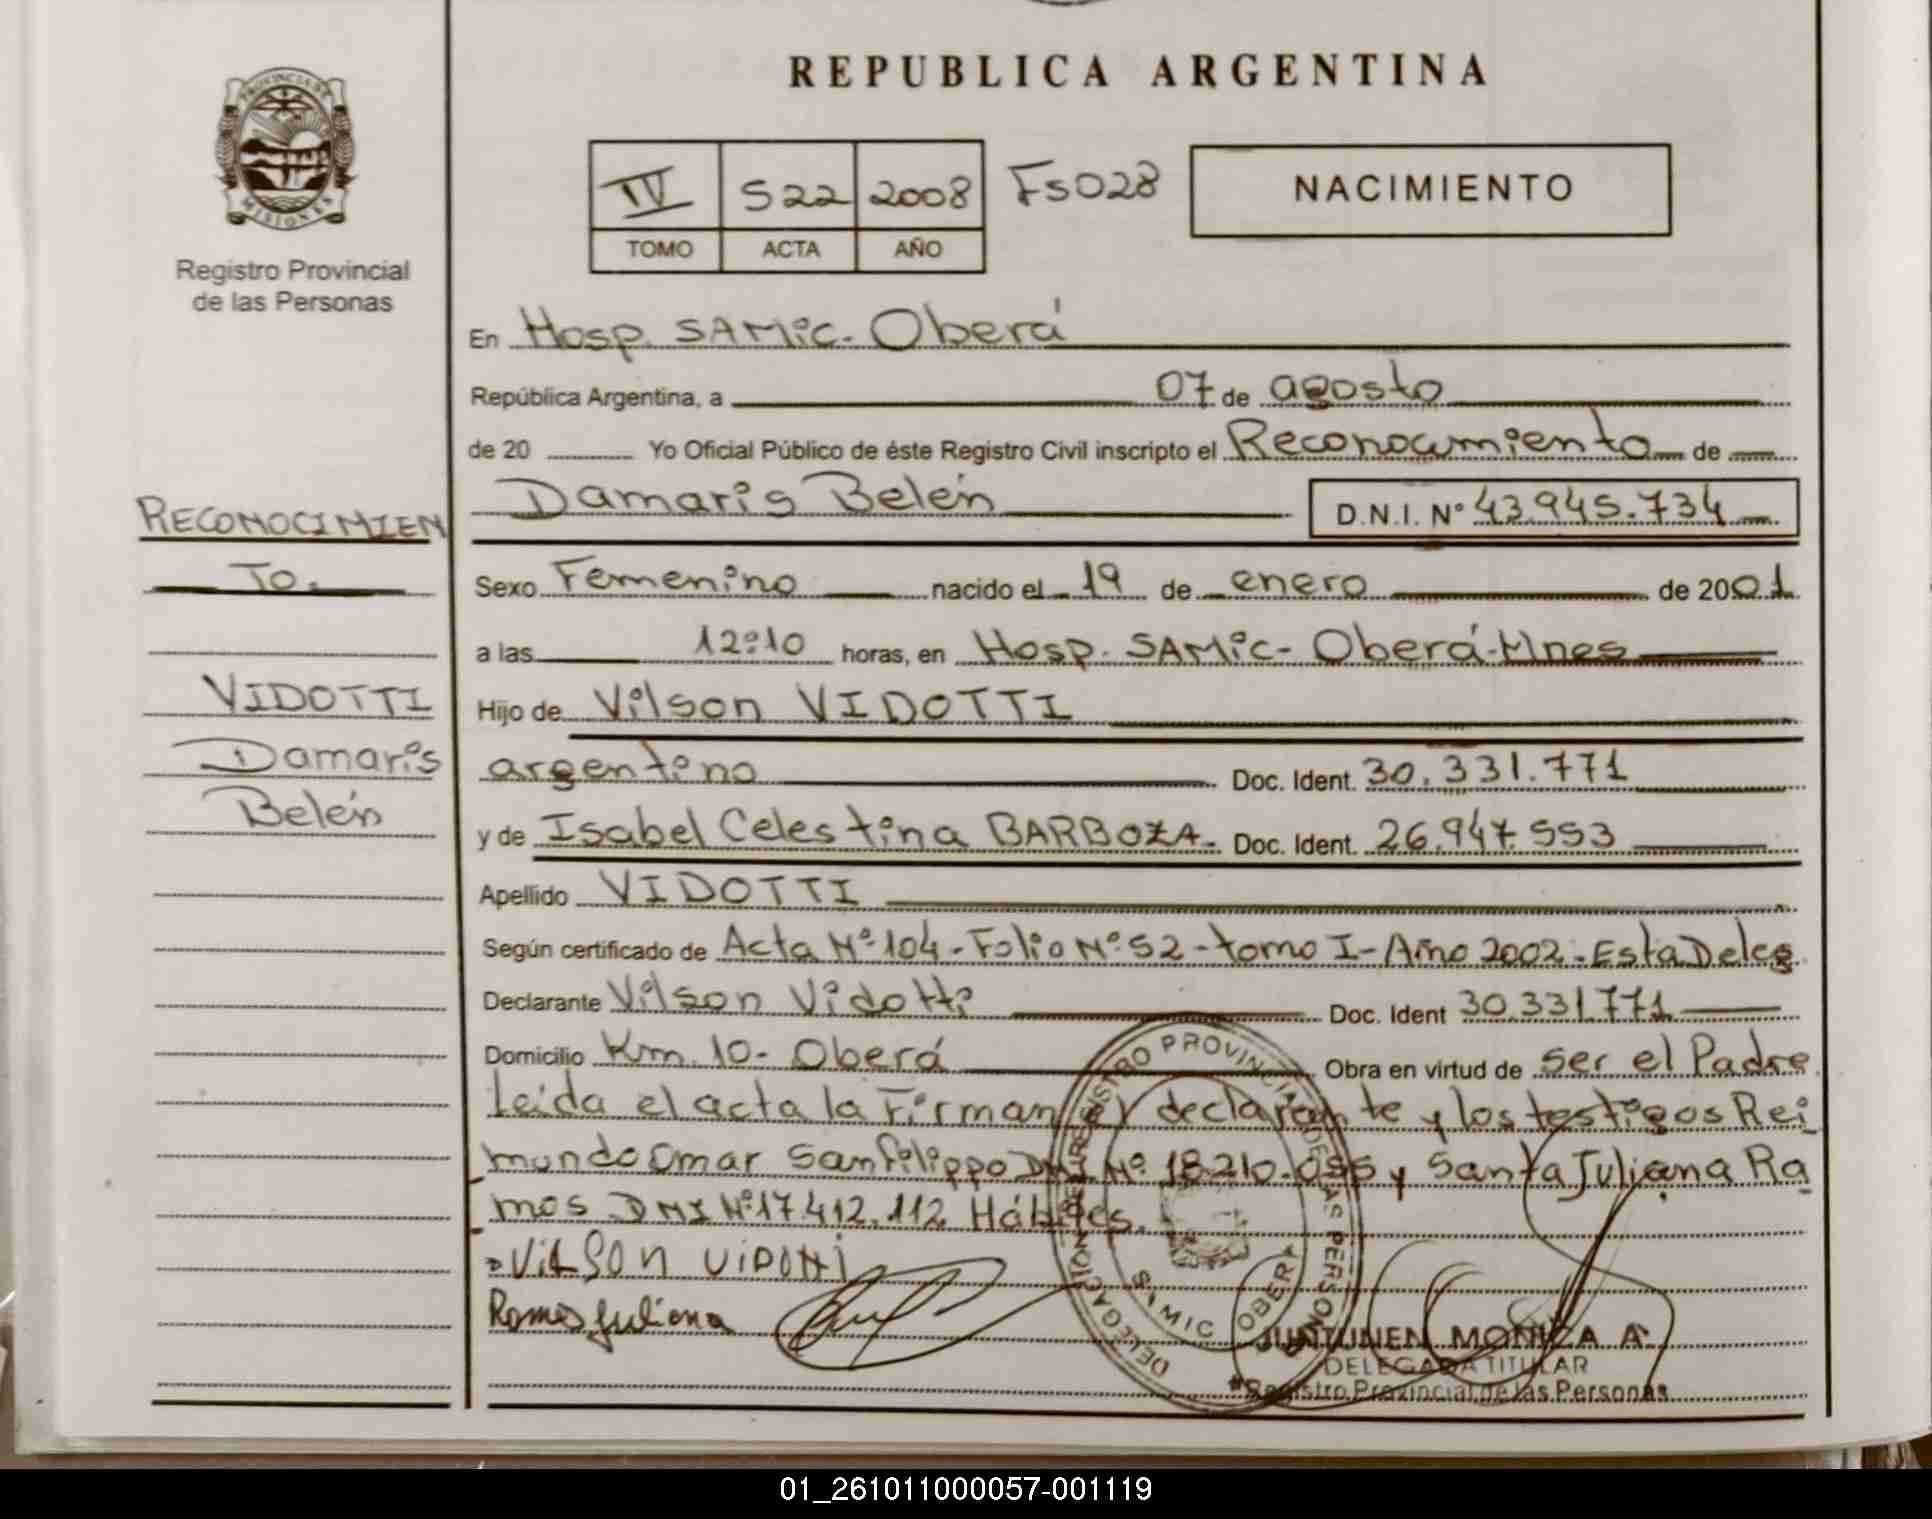 REPUBLICA ARGENTINA
PROVINCIA DE
MISIONES
Registro Provincial
de las Personas
IV 522 2008 Fs 028
TOMO ACTA AÑO
NACIMIENTO
En Hosp. SAMic. Oberá
República Argentina, a 07 de agosto
de 20 Yo Oficial Público de éste Registro Civil inscripto el Reconocimiento de
Damaris Belén D.N.I. N° 43.945.734
Sexo Femenino nacido el 19 de enero de 2001
a las 12:10 horas, en Hosp. SAMic- Oberá-Mnes
Hijo de Vilson VIDOTTI
argentino Doc. Ident. 30.331.771
y de Isabel Celestina BARBOZA. Doc. Ident. 26.947.553
Apellido VIDOTTI
Según certificado de Acta Nº 104 - Folio Nº 52 - tomo I - Año 2002 - Esta Deleg
Declarante Vilson Vidotti Doc. Ident 30.331.771
Domicilio Km. 10- Oberá Obra en virtud de ser el Padre
Leída el acta la Firman el declarante y los testigos Rei
mundo Omar Sanfilippo DNI Nº 18.210.055 y Santa Juliana Ra
mos DNI Nº 17.412.112 Hábiles.
VILSON VIDOTTI
Ramos Juliana
RECONOCIMIEN
TO.
VIDOTTI
Damaris
Belén
DELEGACION REGISTRO PROVINCIAL DE LAS PERSONAS
SAMIC OBERA
JUNTUNEN MONICA A.
DELEGADA TITULAR
Registro Provincial de las Personas
01_261011000057-001119